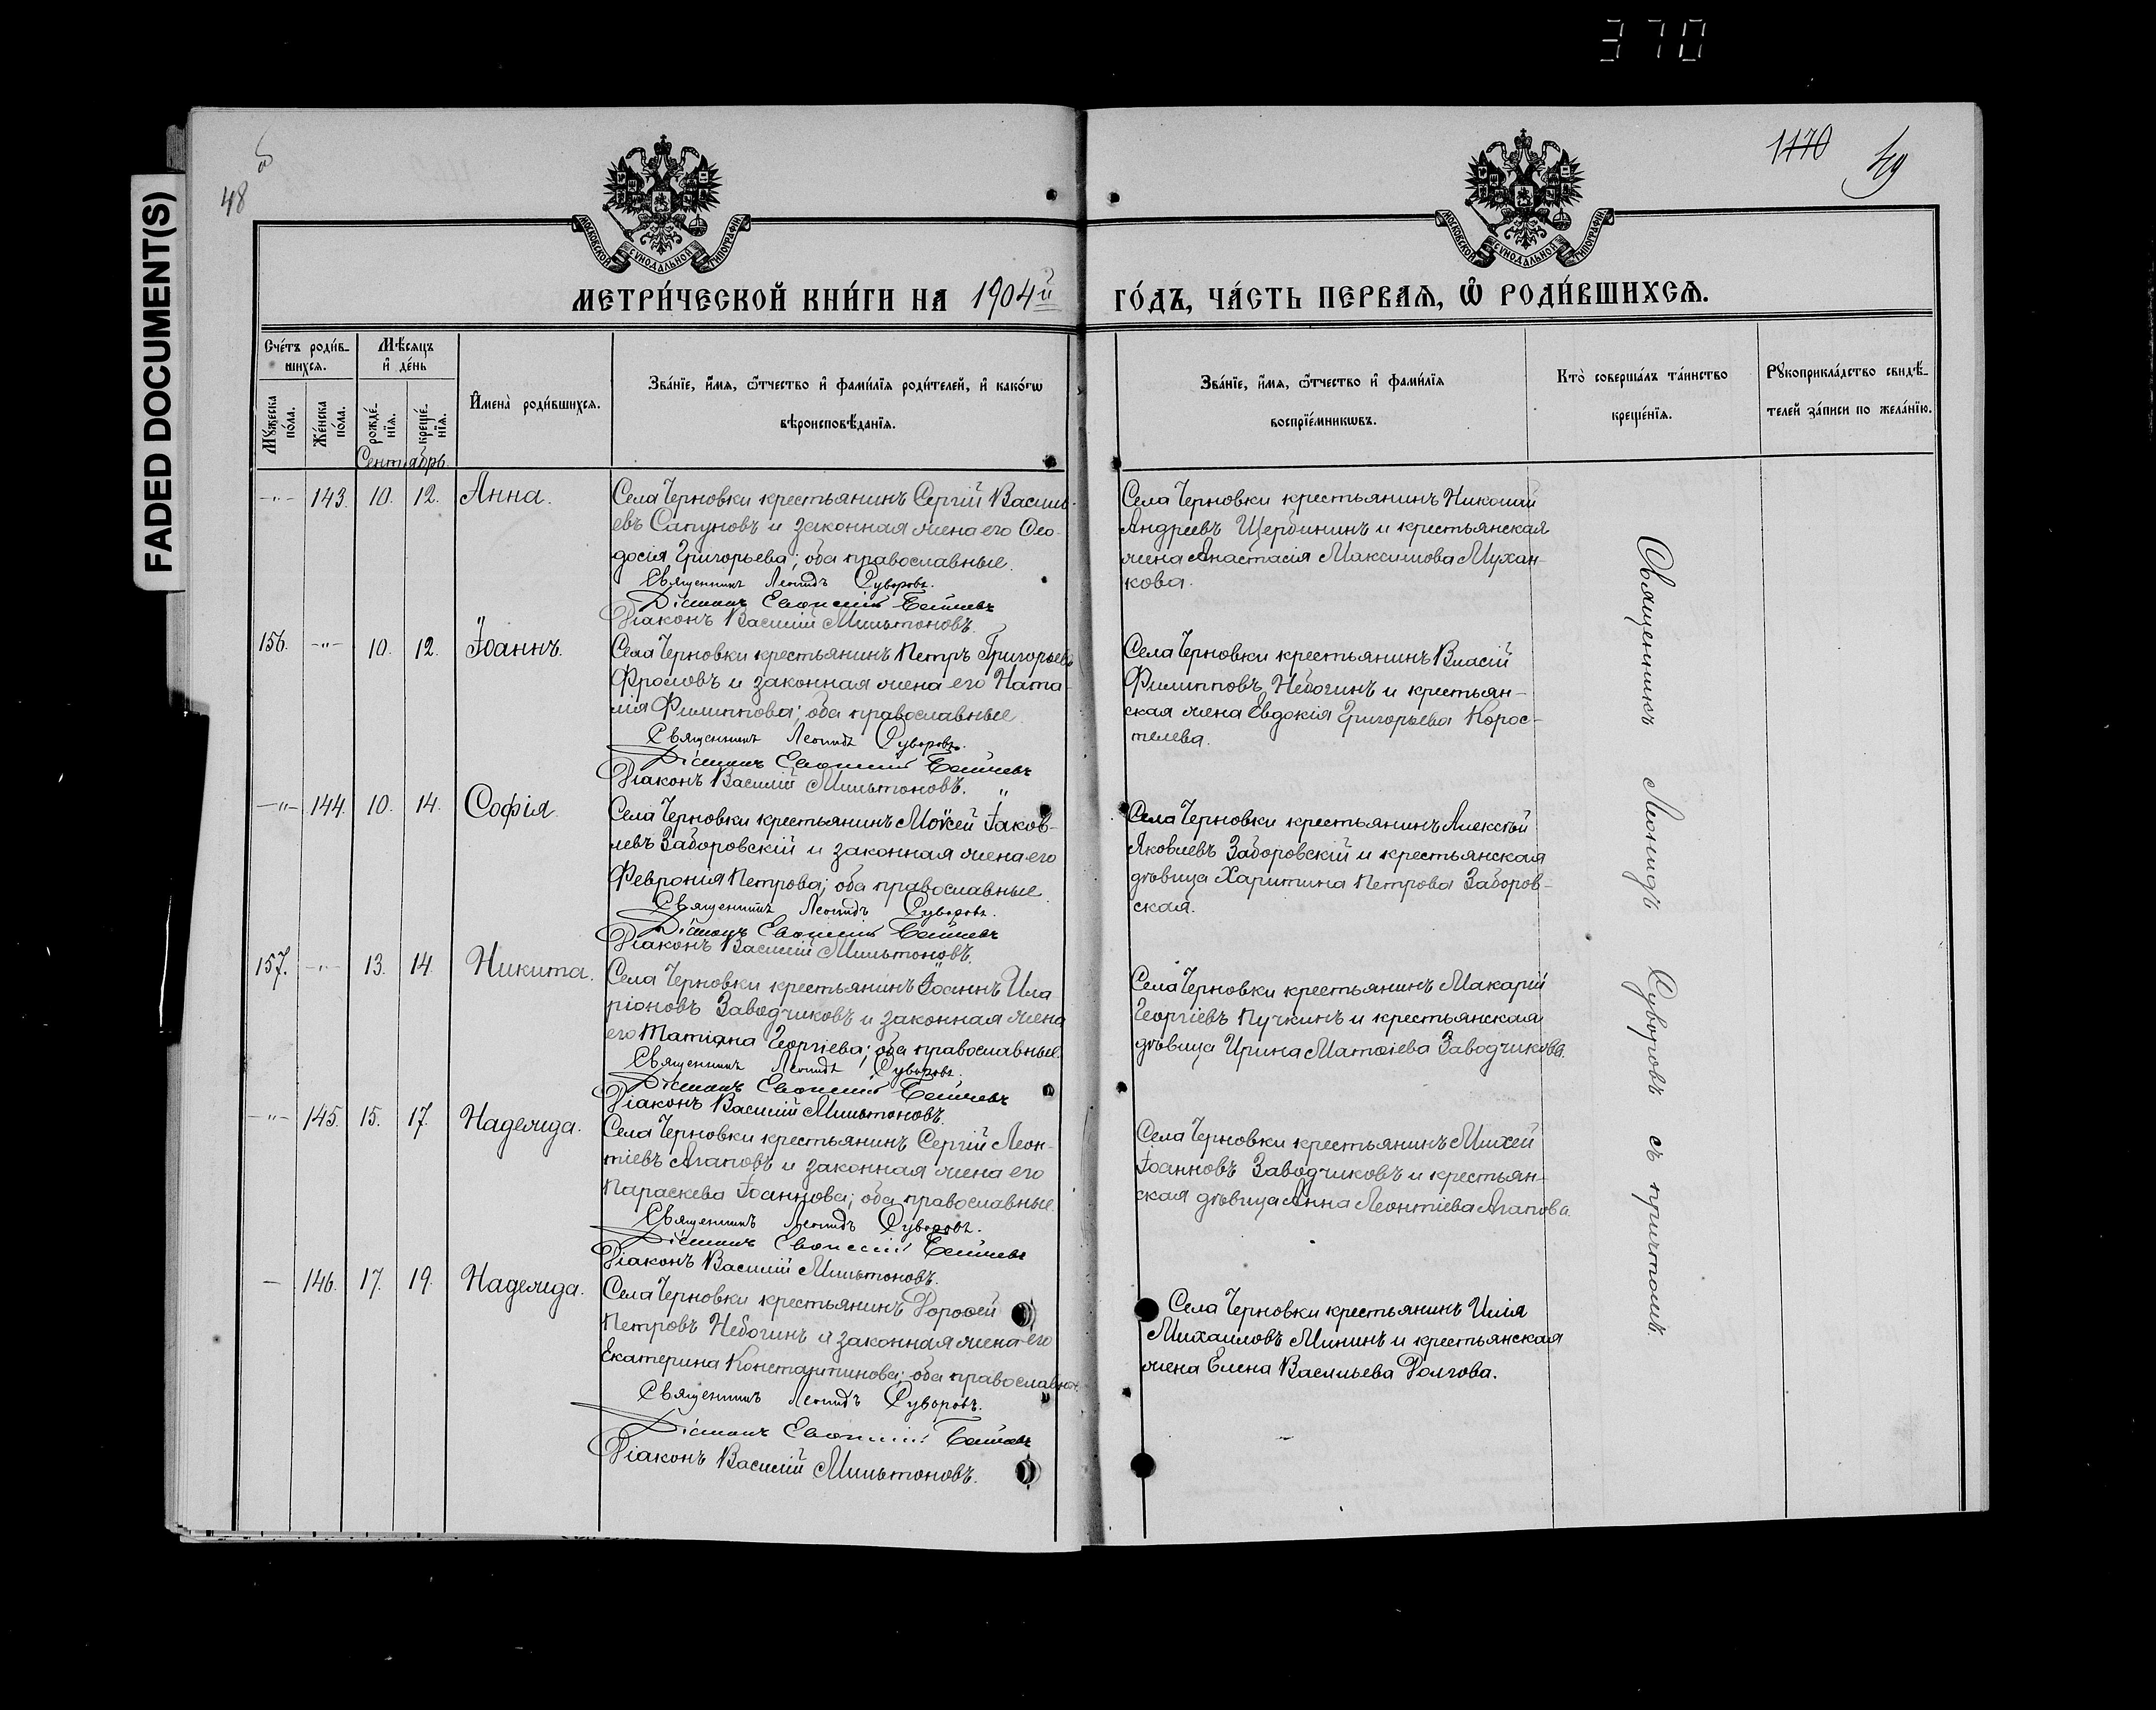 370
FADED DOCUMENT(S)
48
1170
49
МОСКОВСКОЙ СѴНОДАЛЬНОЙ ТИПОГРАФІИ
МОСКОВСКОЙ СѴНОДАЛЬНОЙ ТИПОГРАФІИ
МЕТРИ́ЧЕСКОЙ КНИ́ГИ НА 1904й ГО́ДЪ, ЧА́СТЬ ПЕРВАЯ, Ѡ РОДИ́ВШИХСЯ.
Сче́тъ роди́в-
шихся.
Мѣ́сяцъ
и де́нь
Мꙋжеска
по́ла.
Же́нска
по́ла.
рожде́-
нїя.
креще́-
нїя.
Сентябрь.
Имена̀ роди́вшихся.
Зва́нїе, и́мя, ѻ́тчество и фами́лїя роди́телей, и како́гѡ
вѣроисповѣ́данїя.
Зва́нїе, и́мя, ѻ́тчество и фами́лїя
воспрїе́мникѡвъ.
Кто̀ соверша́лъ та́инство
креще́нїя.
Рꙋкоприкла́дство свидѣ́-
телей за́писи по жела́нїю.
-"- 143. 10. 12. Анна.
Села Черновки крестьянинъ Сергій Василь-
евъ Сапуновъ и законная жена его Ѳео-
досія Григорьева; оба православные.
Священникъ Леонидъ Суворовъ.
Діаконъ Василій Мильтоновъ.
Села Черновки крестьянинъ Николай
Андреевъ Щербининъ и крестьянская
жена Анастасія Максимова Мухан-
кова.
156. -"- 10. 12. Іоаннъ.
Села Черновки крестьянинъ Петръ Григорьевъ
Фроловъ и законная жена его Ната-
лія Филиппова; оба православные.
Священникъ Леонидъ Суворовъ.
Діаконъ Василій Мильтоновъ.
Села Черновки крестьянинъ Власій
Филипповъ Небогинъ и крестьян-
ская жена Евдокія Григорьева Корос-
телева.
-"- 144. 10. 14. Софія
Села Черновки крестьянинъ Моѵсей Іаков-
левъ Заборовскій и законная жена его
Феврония Петрова; оба православные.
Священникъ Леонидъ Суворовъ.
Діаконъ Василій Мильтоновъ.
Села Черновки крестьянинъ Алексѣй
Яковлевъ Заборовскій и крестьянская
дѣвица Харитина Петрова Заборов-
ская.
157. -"- 13. 14. Никита.
Села Черновки крестьянинъ Іоаннъ Ила-
ріоновъ Заводчиковъ и законная жена
его Татіана Георгіева; оба православные.
Священникъ Леонидъ Суворовъ.
Діаконъ Василій Мильтоновъ.
Села Черновки крестьянинъ Макарій
Георгіевъ Пучкинъ и крестьянская
дѣвица Ирина Матѳіева Заводчикова.
-"- 145. 15. 17. Надежда.
Села Черновки крестьянинъ Сергій Леон-
тіевъ Агаповъ и законная жена его
Параскева Іоаннова; оба православные.
Священникъ Леонидъ Суворовъ.
Діаконъ Василій Мильтоновъ.
Села Черновки крестьянинъ Михей
Іоанновъ Заводчиковъ и крестьян-
ская дѣвица Анна Леонтіева Агапова.
— 146. 17. 19. Надежда.
Села Черновки крестьянинъ Дороѳей
Петровъ Небогинъ и законная жена его
Екатерина Константинова; оба православные.
Священникъ Леонидъ Суворовъ.
Діаконъ Василій Мильтоновъ.
Села Черновки крестьянинъ Илія
Михаиловъ Мининъ и крестьянская
жена Елена Васильева Долгова.
Священникъ Леонидъ Суворовъ съ причтомъ.